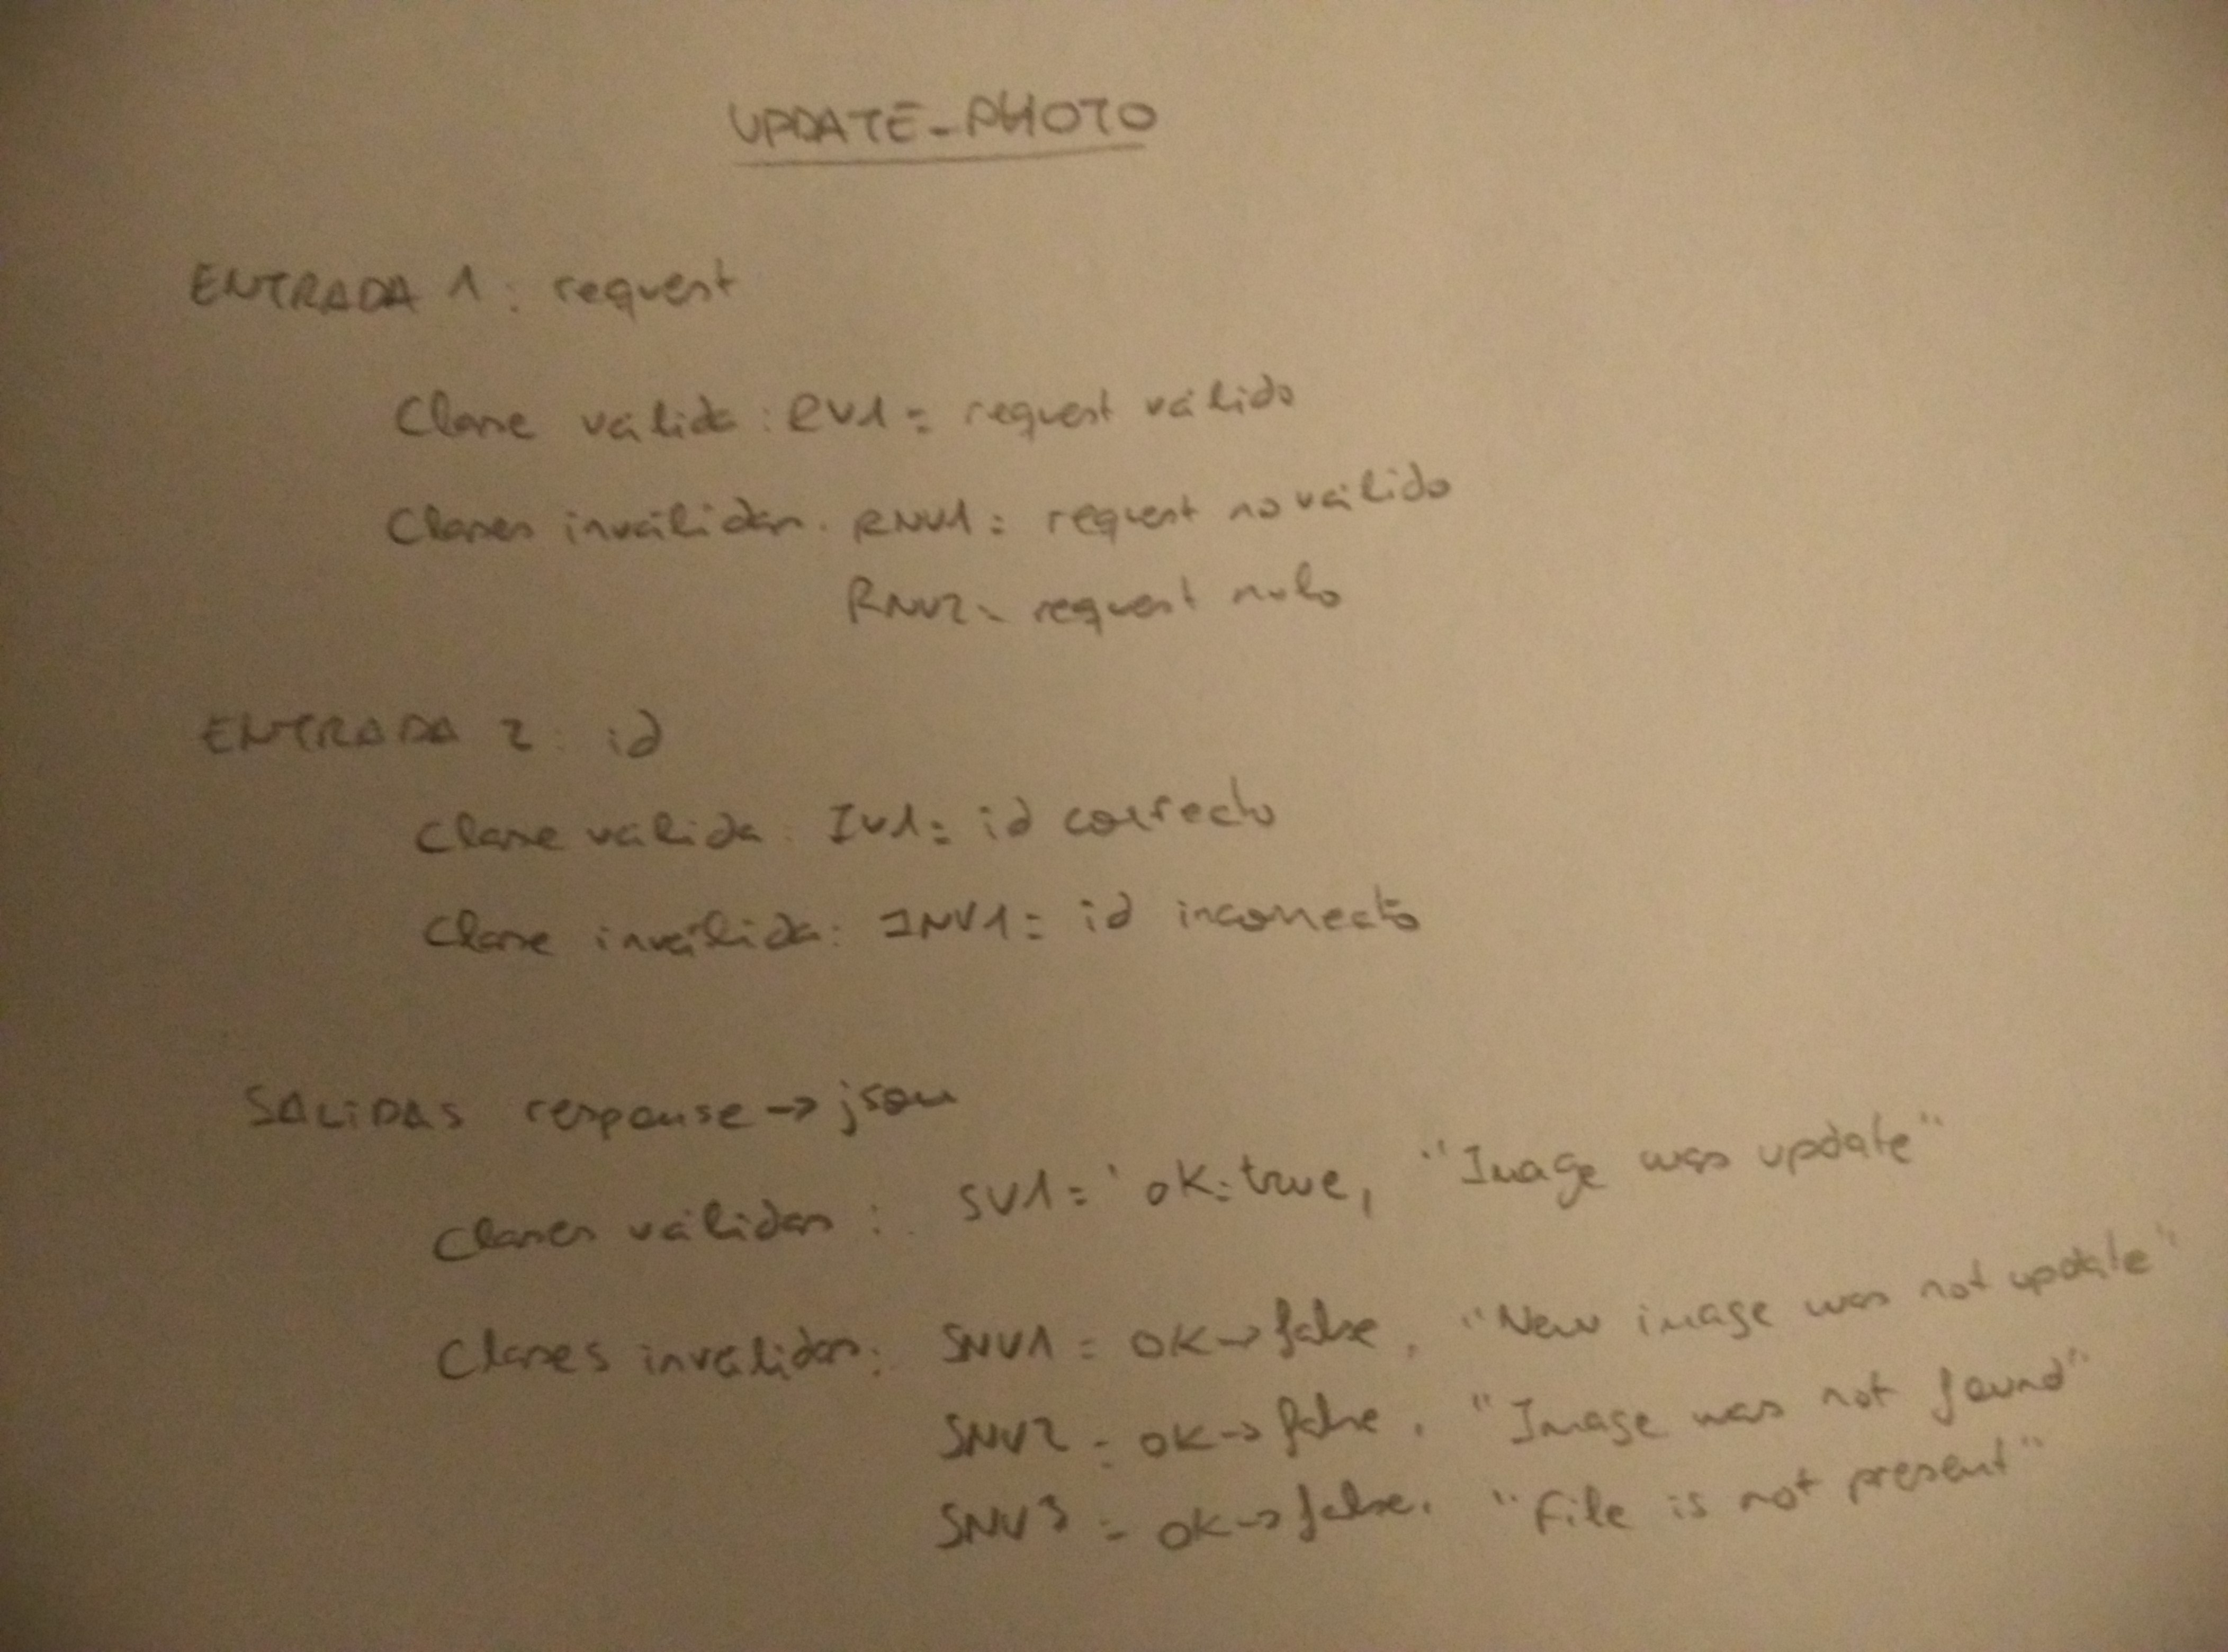 UPDATE-PHOTO
ENTRADA 1: request
Clase válida: RV1= request válido
Clases inválidas. RNV1= request no válido
RNV2- request nulo
ENTRADA 2: id
Clase valida: IV1= id correcto
Clase inválida: INV1= id incorrecto
SALIDAS response → json
Clases válidas: SV1= ok:true, "Image was update"
Clases invalidas: SNV1= ok→false, "New image was not update"
SNV2- ok→false. "Image was not found"
SNV3- ok→false. "File is not present"